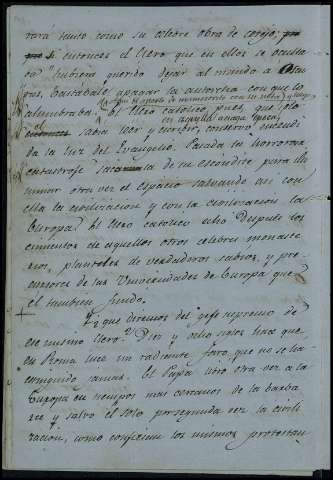 rará tanto como su celebre obra de cotejo;
si entonces el Clero que en ellos se oculta
ba hubiera querido dejar al mundo a Oscu
ras, bastabale apagar la antorcha con que lo
alumbraba. El Clero catolico, pues, que solo
en aquella aciaga época,
sabia leer y escribir, conservó encendi
da la luz del Evangelio. Pasada la horrorosa
catastrofe la de su escondite para ilu
minar otra vez el espacio salvando asi con
ella la civilizacion y con la civilizacion la
Europa. El Clero catolico echó después los
cimientos en aquellos otros celebres monaste
rios, planteles de verdaderos sabios, y pre
cursores de las Universidades de Europa que
él tambien fundó.
Y que diremos del gefe supremo de
ese mismo Clero? Diez y ocho siglos hace que
en Roma luce un radiante faro, que no se ha
estinguido jamas. El Papa libró otra vez a la
Europa en tiempos mas cercanos de la barba
rie y salvó el solo por segunda vez la civili
zacion, como confiesan los mismos protestan